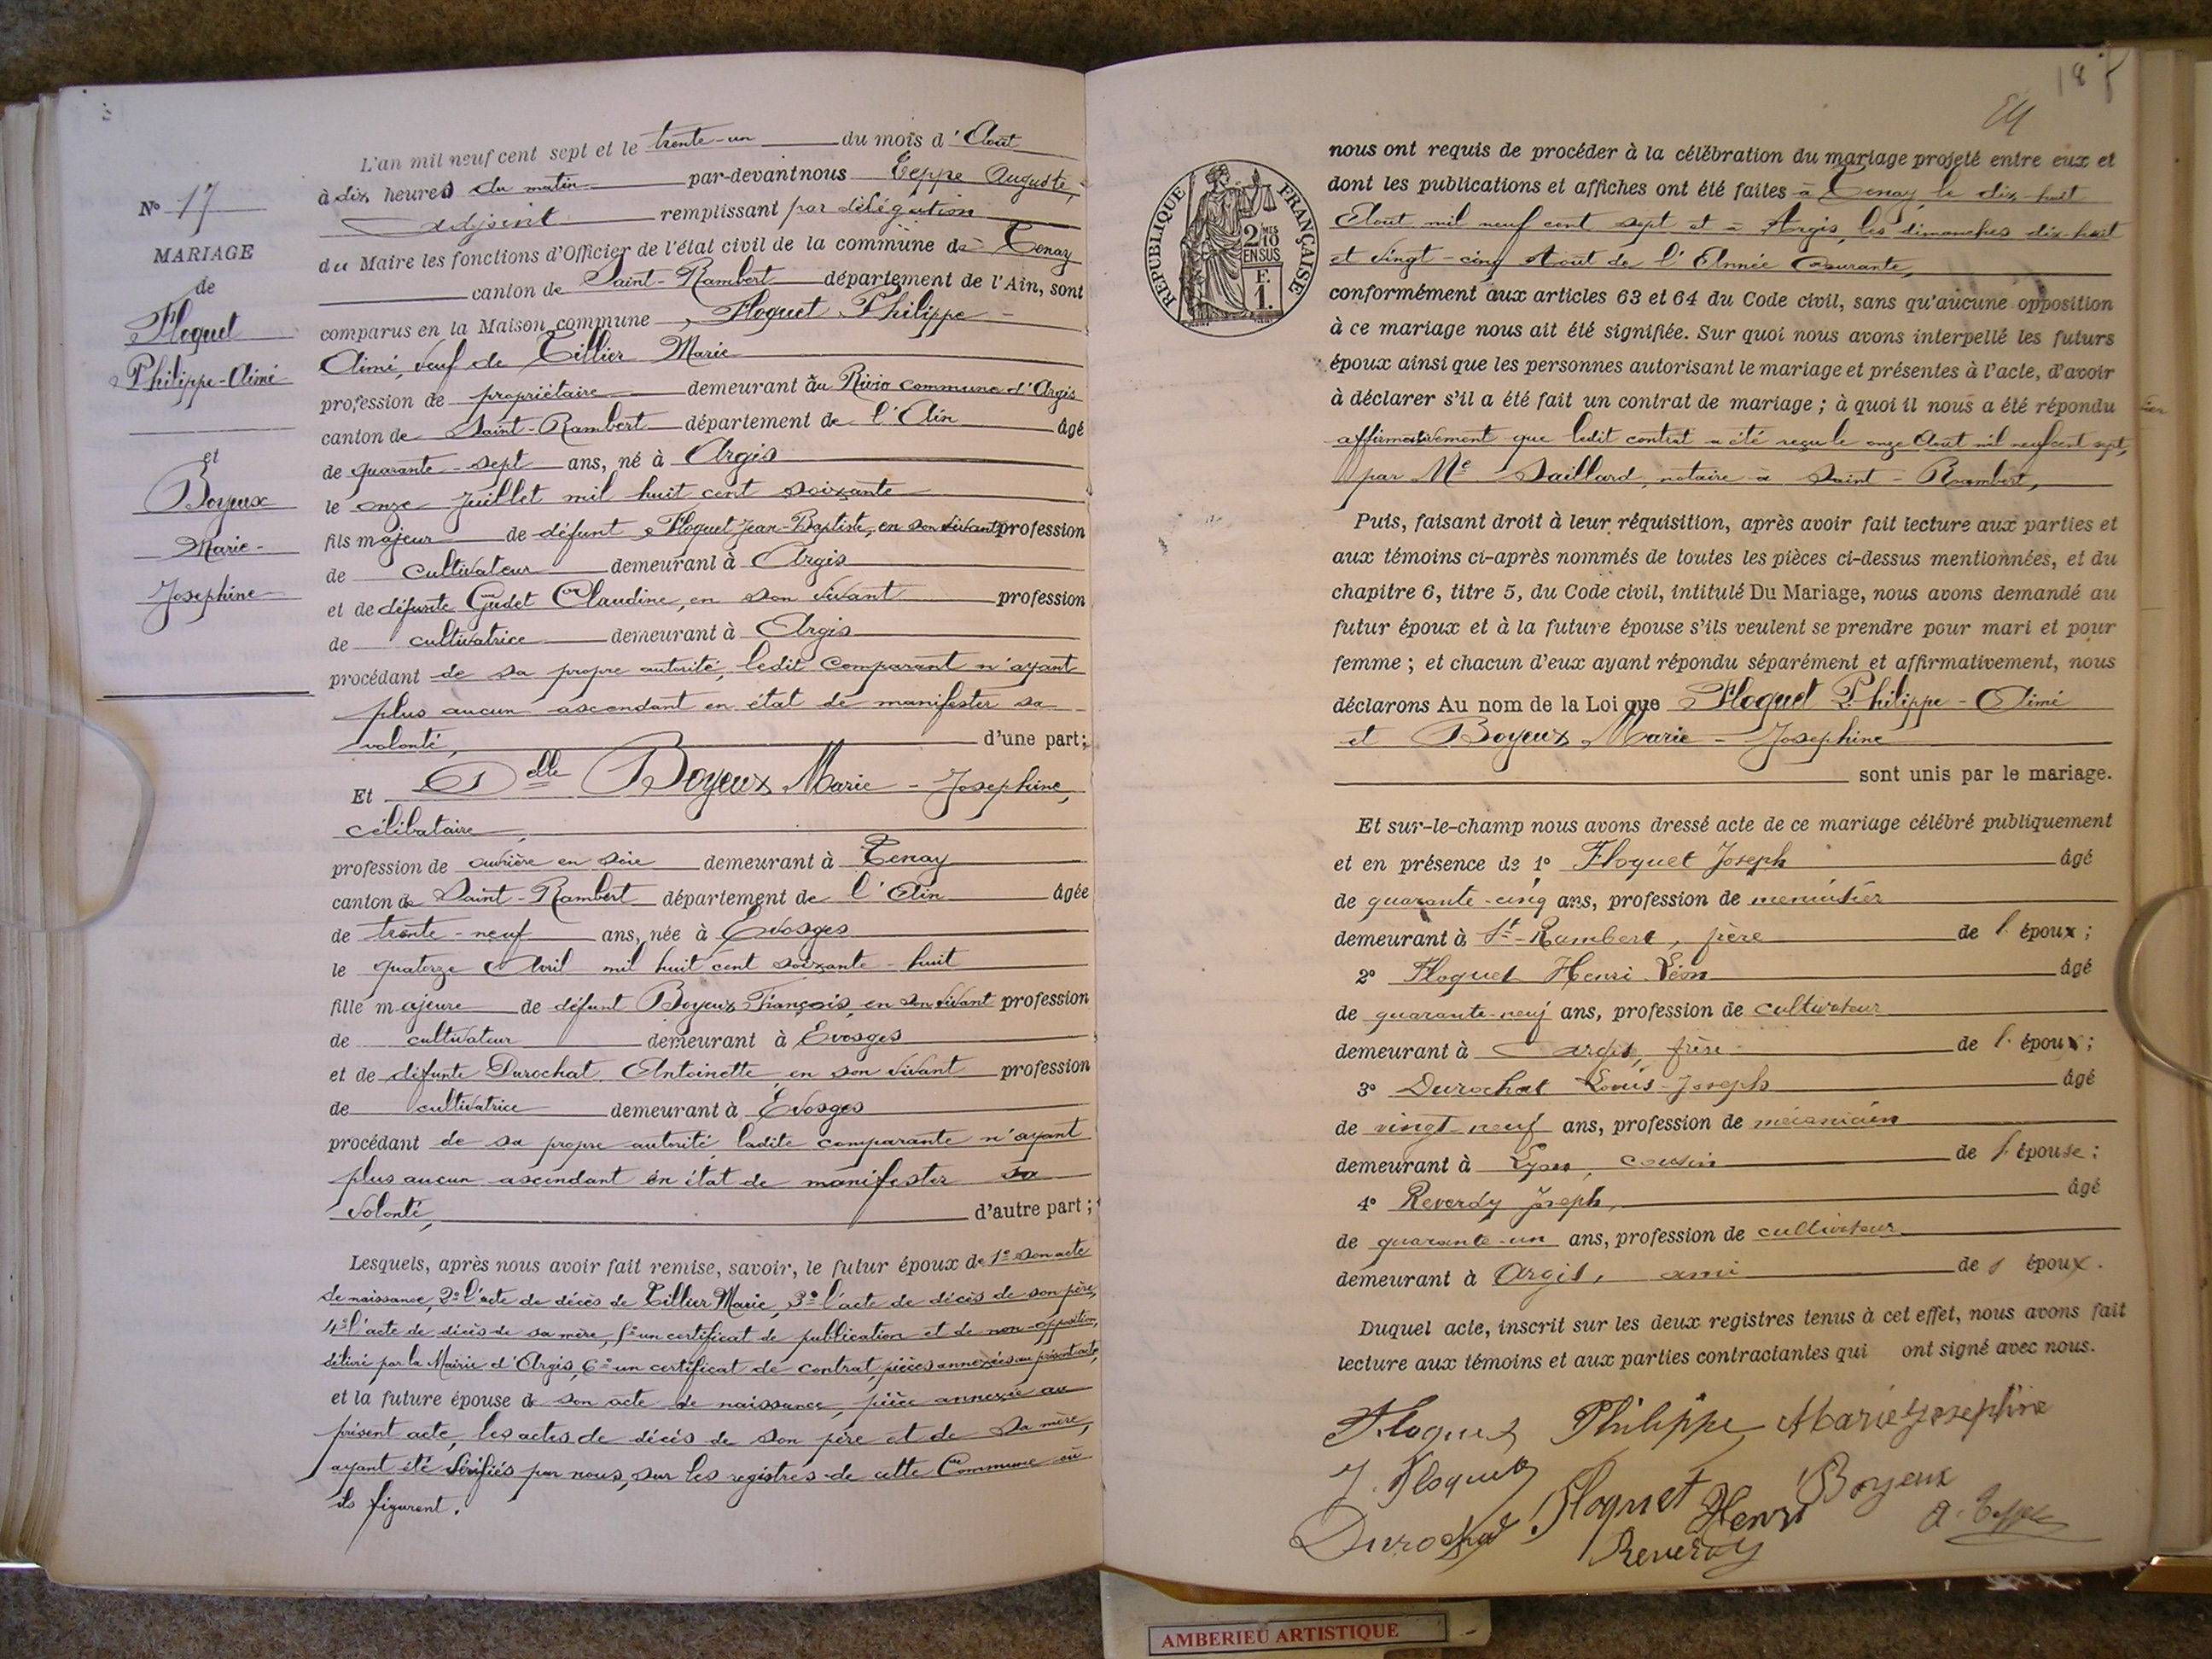 L'an mil neuf cent sept et le trente-un du mois d'Août
à dix heures du matin par-devant nous Teppe Auguste,
adjoint remplissant par délégation
du Maire les fonctions d'Officier de l'état civil de la commune de Tenay
canton de Saint-Rambert département de l'Ain, sont
comparus en la Maison commune, Floquet Philippe
Aimé, veuf de Tillier Marie
profession de propriétaire demeurant au Rivio commune d'Argis
canton de Saint-Rambert département de l'Ain âgé
de quarante-sept ans, né à Argis
le onze Juillet mil huit cent soixante
fils majeur de défunt Floquet Jean-Baptiste, en son vivant profession
de cultivateur demeurant à Argis
et de défunte Gudet Claudine, en son vivant profession
de cultivatrice demeurant à Argis
procédant de sa propre autorité, ledit comparant n'ayant
plus aucun ascendant en état de manifester sa
volonté, d'une part;
Et Delle Boyeux Marie-Josephine,
célibataire,
profession de ouvrière en soie demeurant à Tenay
canton de Saint-Rambert département de l'Ain âgée
de trente-neuf ans, née à Evosges
le quatorze Avril mil huit cent soixante-huit
fille majeure de défunt Boyeux François, en son vivant profession
de cultivateur demeurant à Evosges
et de défunte Durochat Antoinette en son vivant profession
de cultivatrice demeurant à Evosges
procédant de sa propre autorité, ladite comparante n'ayant
plus aucun ascendant en état de manifester sa
volonté, d'autre part;
Lesquels, après nous avoir fait remise, savoir, le futur époux de 1° son acte
de naissance, 2° l'acte de décès de Tillier Marie, 3° l'acte de décès de son père,
4° l'acte de décès de sa mère, 5° un certificat de publication et de non-opposition,
délivré par la Mairie d'Argis, 6° un certificat de contrat, pièces annexées au présent acte,
et la future épouse de son acte de naissance, pièce annexée au
présent acte, les actes de décès de son père et de sa mère,
ayant été vérifiés par nous, sur les registres de cette Commune où
ils figurent.
N° 17
MARIAGE
de
Floquet
Philippe-Aimé
et
Boyeux
Marie-
Josephine
18
RÉPUBLIQUE FRANÇAISE
2/10MES
EN SUS
F.
1.
nous ont requis de procéder à la célébration du mariage projeté entre eux et
dont les publications et affiches ont été faites à Tenay, le dix-huit
Août mil neuf cent sept et à Argis, les dimanches dix-huit
et vingt-cinq Août de l'Année Courante,
conformément aux articles 63 et 64 du Code civil, sans qu'aucune opposition
à ce mariage nous ait été signifiée. Sur quoi nous avons interpellé les futurs
époux ainsi que les personnes autorisant le mariage et présentes à l'acte, d'avoir
à déclarer s'il a été fait un contrat de mariage; à quoi il nous a été répondu
affirmativement que ledit contrat a été reçu le onze Août mil neuf cent sept,
par Me Saillard, notaire à Saint-Rambert,
Puis, faisant droit à leur réquisition, après avoir fait lecture aux parties et
aux témoins ci-après nommés de toutes les pièces ci-dessus mentionnées, et du
chapitre 6, titre 5, du Code civil, intitulé Du Mariage, nous avons demandé au
futur époux et à la future épouse s'ils veulent se prendre pour mari et pour
femme; et chacun d'eux ayant répondu séparément et affirmativement, nous
déclarons Au nom de la Loi que Floquet Philippe-Aimé
et Boyeux Marie-Josephine
sont unis par le mariage.
Et sur-le-champ nous avons dressé acte de ce mariage célébré publiquement
et en présence de 1° Floquet Joseph âgé
de quarante-cinq ans, profession de menuisier
demeurant à St-Rambert, frère de l'époux;
2° Floquet Henri Léon âgé
de quarante-neuf ans, profession de cultivateur
demeurant à Argis, frère de l'époux;
3° Durochat Louis-Joseph âgé
de vingt-neuf ans, profession de mécanicien
demeurant à Lyon, cousin de l'épouse;
4° Reverdy Joseph, âgé
de quarante-un ans, profession de cultivateur
demeurant à Argis, ami de l'époux.
Duquel acte, inscrit sur les deux registres tenus à cet effet, nous avons fait
lecture aux témoins et aux parties contractantes qui ont signé avec nous.
Floquet Philippe Marie Josephine
J. Floquet Boyeux
Durochat Floquet Henri A. Teppe
Reverdy
AMBERIEU ARTISTIQUE